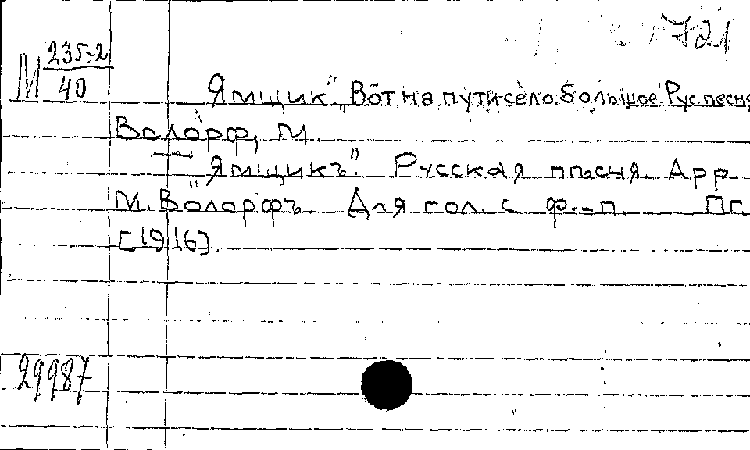 721
М 235-2/40
"Ямщик" Вот на пути село большое. Рус. песня
Волорф, М.
"Ямщикъ". Русская пѣсня. Арр.
М. Волорфъ. Для гол. с ф.-п. Пг.
[1916].
29987